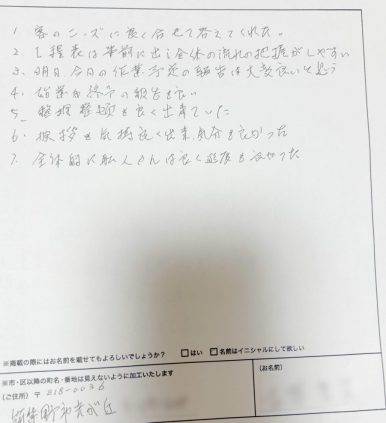 1. 客のニーズに良く合せて答えてくれた。
2. 工程表は事前に出し全体の流れの把握がしやすい
3. 明日、今日の作業予定の報告は大変良いと思う
4. 作業終了の報告も良い
5. 整理整頓も良く出来ていた
6. 挨拶も気持良く出来、気分も良かった
7. 全体的に職人さんは良く 良かった
※掲載の際にはお名前を載せてもよろしいでしょうか? □はい □名前はイニシャルにして欲しい
※市・区以降の町名・番地は見えないように加工いたします
(ご住所) 〒 818-0036
筑紫野市光が丘
(お名前)